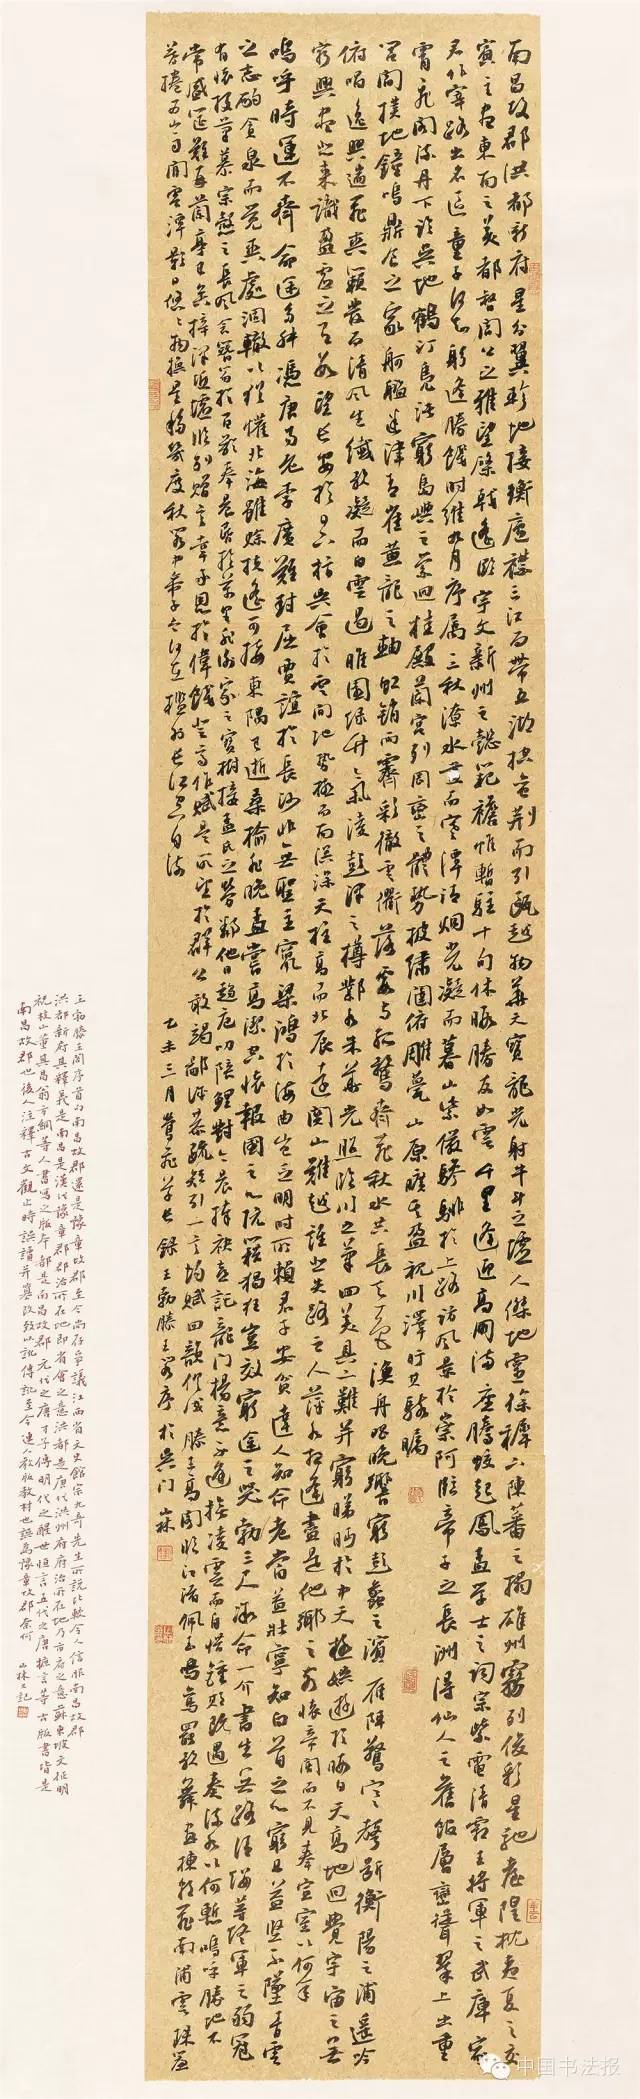 南昌故郡洪都新府星分翼軫地接衡廬襟三江而帶五湖控蠻荊而引甌越物華天寶龍光射牛斗之墟人傑地靈徐孺下陳蕃之榻雄州霧列俊彩星馳臺隍枕夷夏之交
賓主盡東南之美都督閻公之雅望棨戟遙臨宇文新州之懿範襜帷暫駐十旬休暇勝友如雲千里逢迎高朋滿座騰蛟起鳳孟學士之詞宗紫電清霜王將軍之武庫家
君作宰路出名區童子何知躬逢勝餞時維九月序屬三秋潦水盡而寒潭清烟光凝而暮山紫儼驂騑於上路訪風景於崇阿臨帝子之長洲得仙人之舊館層巒聳翠上出重
霄飛閣流丹下臨無地鶴汀鳧渚窮島嶼之縈迴桂殿蘭宮列岡巒之體勢披繡闥俯雕甍山原曠其盈視川澤盱其駭矚
閭閻撲地鐘鳴鼎食之家舸艦迷津青雀黃龍之軸虹銷雨霽彩徹雲衢落霞與孤鶩齊飛秋水共長天一色漁舟唱晚響窮彭蠡之濱雁陣驚寒聲斷衡陽之浦遙吟
俯唱逸興遄飛爽籟發而清風生纖歌凝而白雲遏睢園綠竹氣凌彭澤之樽鄴水朱華光照臨川之筆四美具二難并窮睇眄於中天極娛遊於暇日天高地迥覺宇宙之無
窮興盡悲來識盈虛之有數望長安於日下指吳會於雲間地勢極而南溟深天柱高而北辰遠關山難越誰悲失路之人萍水相逢盡是他鄉之客懷帝閽而不見奉宣室以何年
嗚呼時運不齊命途多舛馮唐易老李廣難封屈賈誼於長沙非無聖主竄梁鴻於海曲豈乏明時所賴君子安貧達人知命老當益壯寧知白首之心窮且益堅不墜青雲
之志酌貪泉而覺爽處涸轍以猶懽北海雖賒扶搖可接東隅已逝桑榆非晚孟嘗高潔空懷報國之心阮籍猖狂豈效窮途之哭勃三尺微命一介書生無路請纓等終軍之弱冠
有懷投筆慕宗愨之長風舍簪笏於百齡奉晨昏於萬里非謝家之寶樹接孟氏之芳鄰他日趨庭叨陪鯉對今晨捧袂喜託龍門楊意不逢撫凌雲而自惜鍾期既遇奏流水以何慚嗚呼勝地不
常盛筵難再蘭亭已矣梓澤丘墟臨別贈言幸承恩於偉餞登高作賦是所望於群公敢竭鄙誠恭疏短引一言均賦四韻俱成滕王高閣臨江渚佩玉鳴鸞罷歌舞畫棟朝飛南浦雲珠簾
暮捲西山雨閒雲潭影日悠悠物換星移幾度秋閣中帝子今何在檻外長江空自流
乙未三月鶯飛草長錄王勃滕王閣序於吳門山林
王勃滕王閣序首句南昌故郡還是豫章故郡至今尚存爭議江西省文史館宗九奇先生所說比較令人信服南昌故郡
洪都新府其釋義是南昌是漢代豫章郡郡治所在地即省會之意洪都是唐代洪州府府治所在地乃首府之意蘇東坡文徵明
祝枝山董其昌翁方綱等人書寫之版本都是南昌故郡元代之唐才子傳明代之醒世恒言五代之唐摭言等古版書皆是
南昌故郡也後人注釋古文觀止時誤讀并篡改致以訛傳訛至今連人教版教材也誤為豫章故郡奈何 山林又記
中国书法报